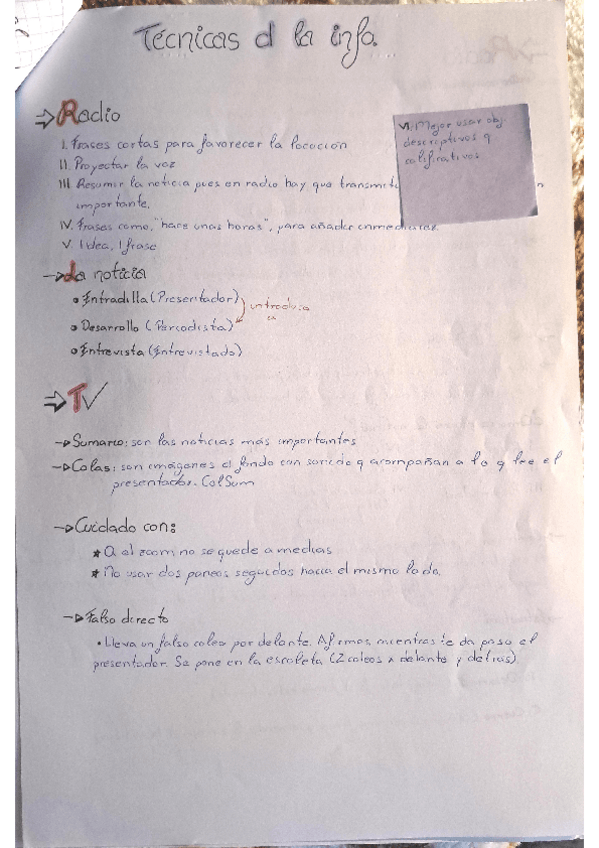 Técnicas d la info.
⇒Radio
I. Frases cortas para favorecer la locución
II. Proyectar la voz
III. Resumir la noticia pues en radio hay que
importante.
IV. Frases como, "hace unas horas", para añadir
V. 1 idea, 1 frase
VI. Mejor usar obj.
descriptivos q
calificativos
→La noticia
• Entradilla (Presentador)
introduce
a
• Desarrollo (Periodista)
• Entrevista (Entrevistado)
⇒TV
→Sumario: son las noticias más importantes
→Colas: son imágenes d fondo con sonido q acompañan a lo q lee el
presentador. ColSum
→Cuidado con:
* Q el zoom no se quede a medias
* No usar dos paneos seguidos hacia el mismo lado.
→Falso directo
• Lleva un falso coleo por delante. mientras le da paso el
presentador. Se pone en la escaleta (2 coleos x delante y detrás)